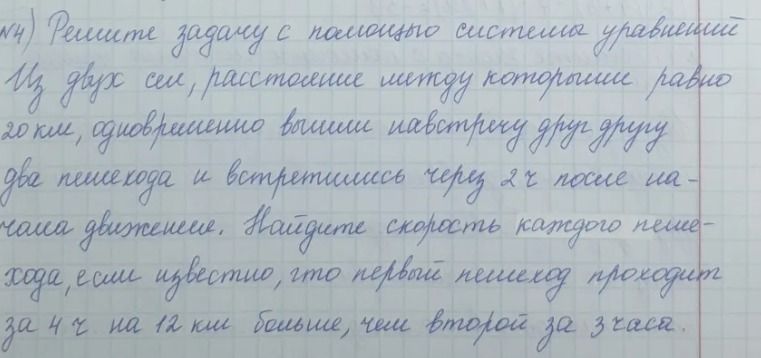 №4) Решите задачу с помощью системы уравнений
Из двух сел, расстояние между которыми равно
20 км, одновременно вышли навстречу друг другу
два пешехода и встретились через 2 ч после на-
чала движения. Найдите скорость каждого пеше-
хода, если известно, что первый пешеход проходит
за 4 ч на 12 км больше, чем второй за 3 часа.